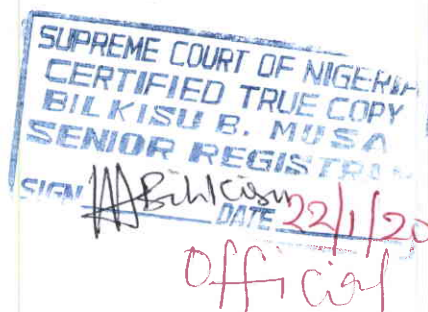 SUPREME COURT OF NIGERIA
CERTIFIED TRUE COPY
BILKISU B. MUSA
SENIOR REGISTRA
SIGN Bilkisu DATE 22/1/20
Official